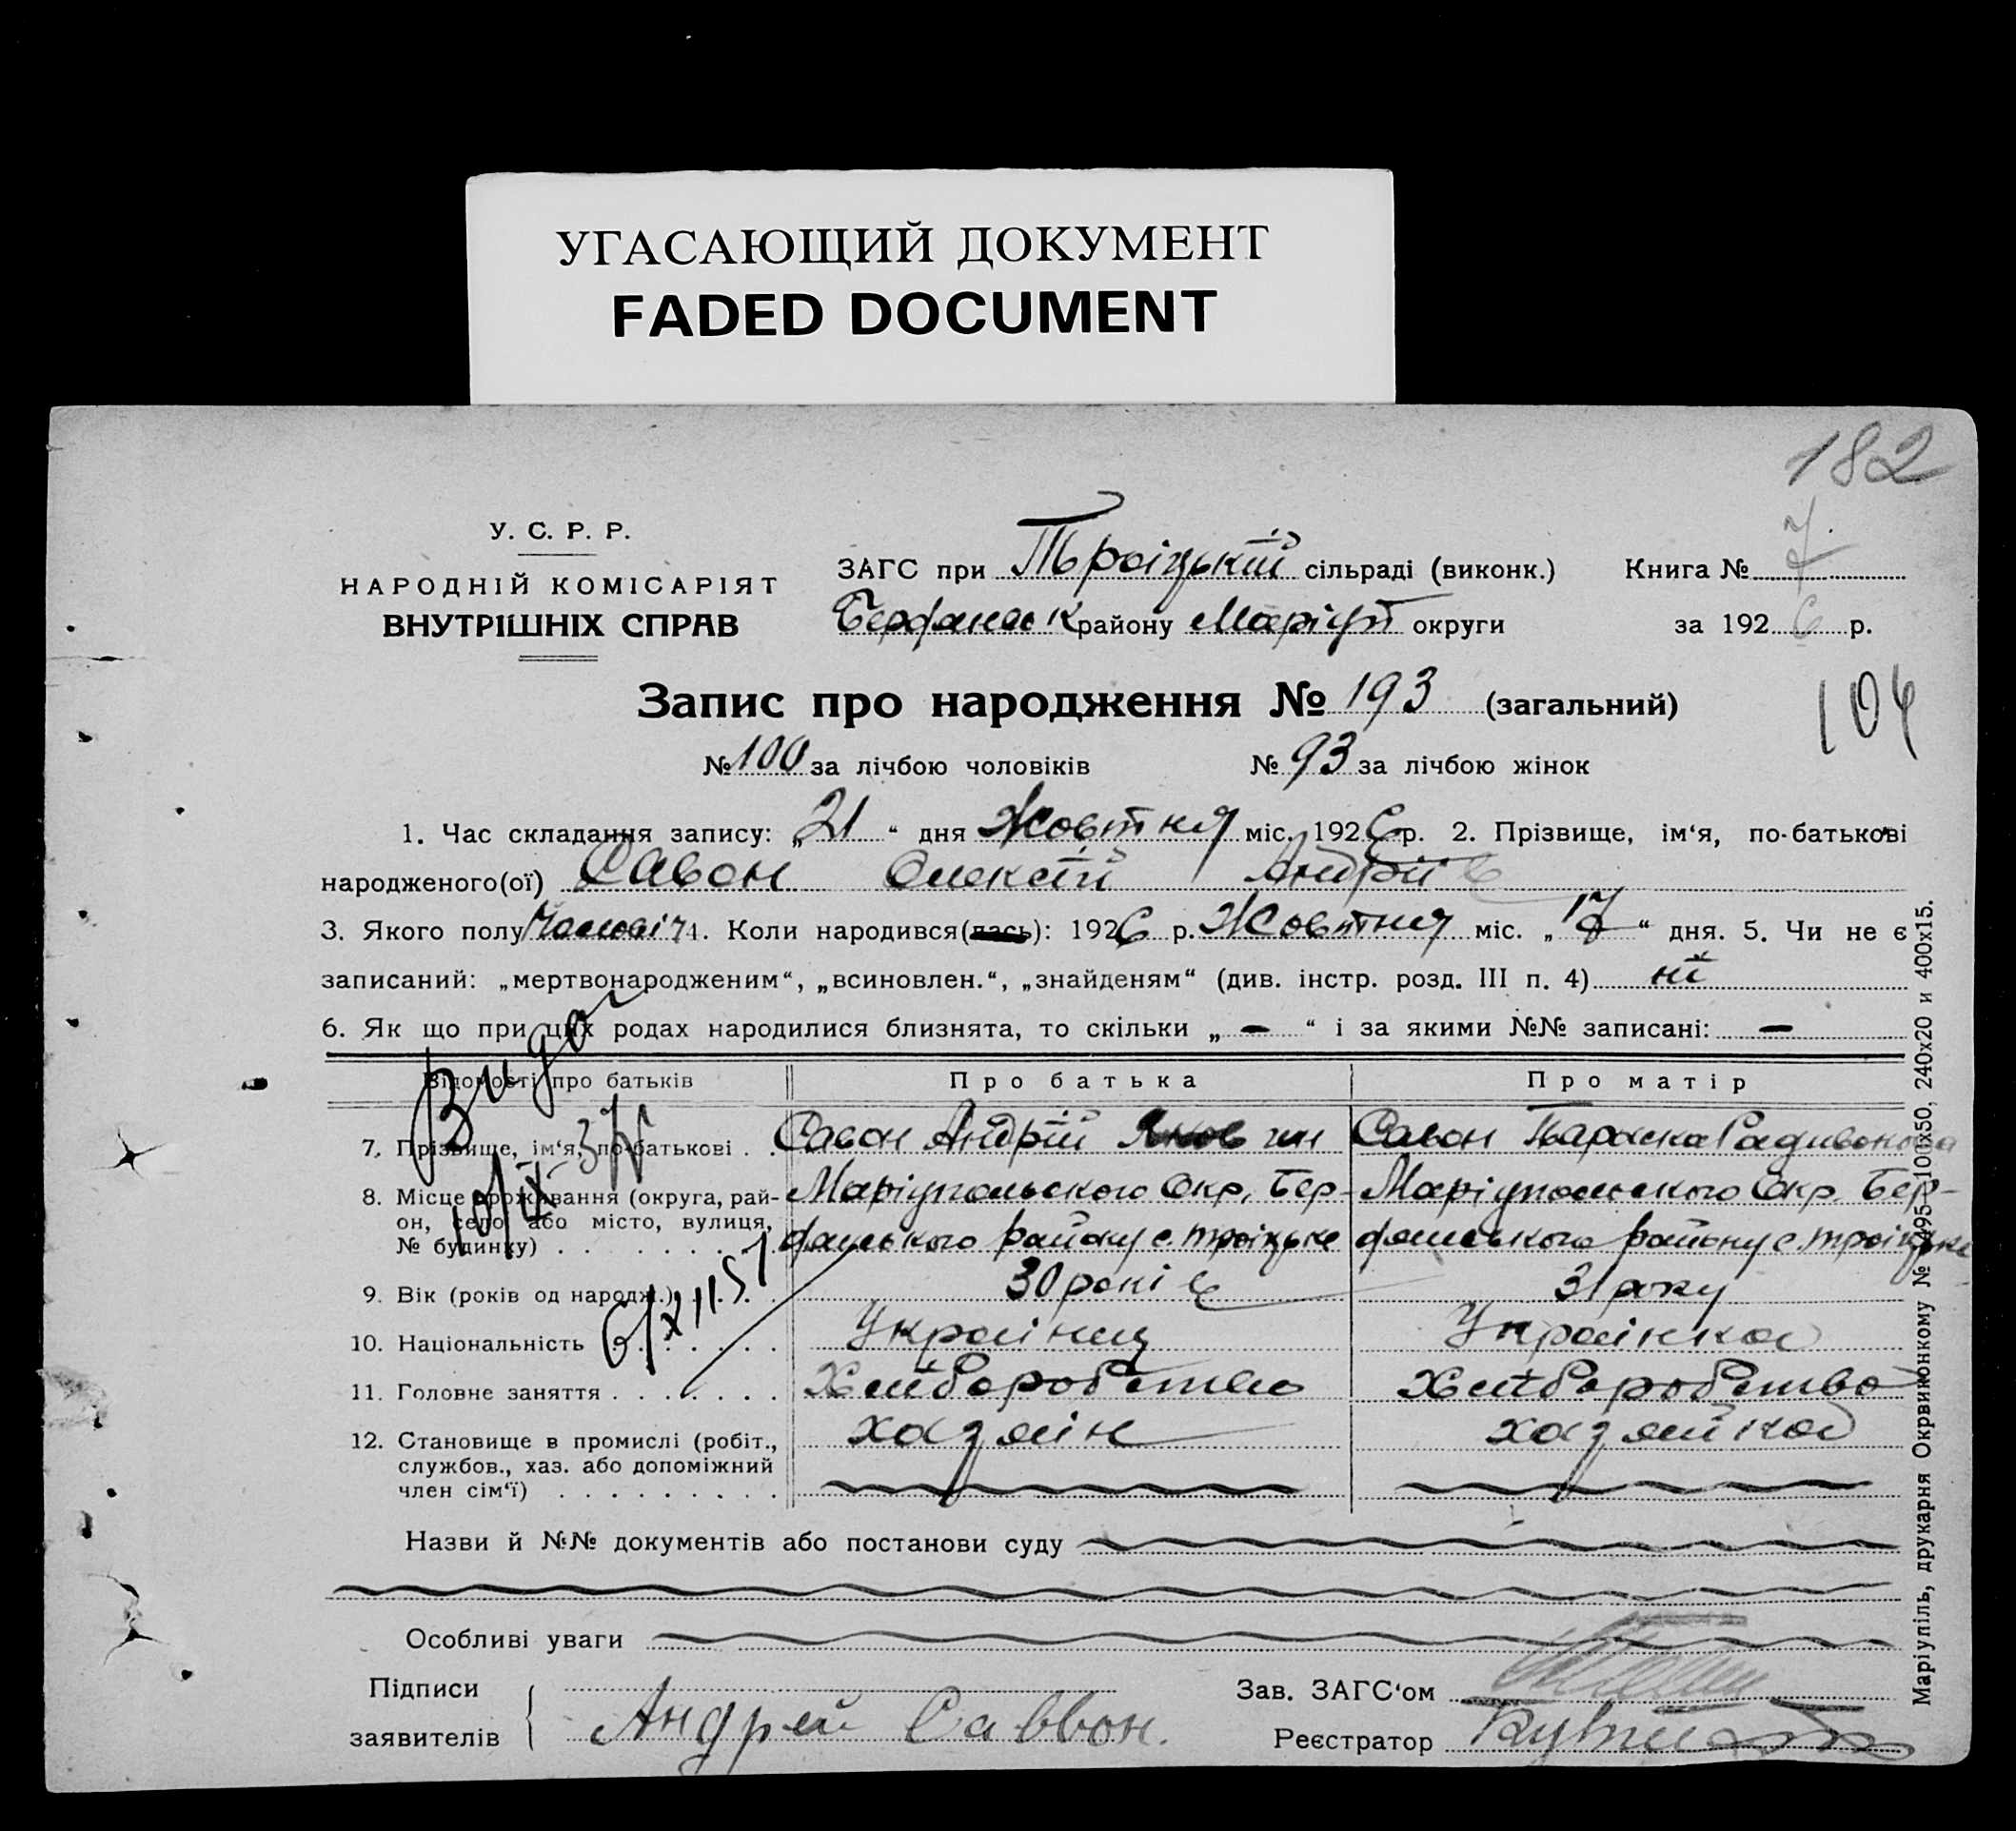 УГАСАЮЩИЙ ДОКУМЕНТ
FADED DOCUMENT
182
У. С. Р. Р.
НАРОДНІЙ КОМІСАРІЯТ
ВНУТРІШНІХ СПРАВ
ЗАГС при Троїцькій сільраді (виконк.) Книга № 7
Бердянськ району Маріуп округи за 1926 р.
Запис про народження № 193 (загальний)
104
№ 100 за лічбою чоловіків № 93 за лічбою жінок
1. Час складання запису: „21“ дня Жовтня міс. 1926 р. 2. Прізвище, ім‘я, по-батькові
народженого(ої) Савон Олексій Андріїв
3. Якого полу Чоловіч 4. Коли народився(лась): 1926 р. Жовтня міс. „17“ дня. 5. Чи не є
записаний: „мертвонародженим“, „всиновлен.“, „знайденям“ (див. інстр. розд. III п. 4) ні
6. Як що при цих родах народилися близнята, то скільки „ — “ і за якими №№ записані: —
Відомості про батьків Про батька Про матір
7. Прізвище, ім‘я, по-батькові . . Савон Андрій Яковлин Савон Параска Радивонова
8. Місце прожпвання (округа, рай- Маріупольского Окр. Бер- Маріупольского Окр. Бер-
он, село або місто, вулиця, № будинку) дянського району с. Троїцьке дянського району с. Троїцьке
9. Вік (років од народж.) 30 років 31 року
10. Національність Українец Українка
11. Головне заняття Хліборобство Хліборобство
12. Становище в промислі (робіт., хазяїн хазяйка
службов., хаз. або допоміжний
член сім‘ї)
Видан
10/IX-37
6/XII 51
Назви й №№ документів або постанови суду
Особливі уваги
Підписи Зав. ЗАГС‘ом
заявителів Андрей Саввон. Реєстратор
Маріупіль, друкарня Окрвиконкому № 495-100х50, 240х20 и 400х15.